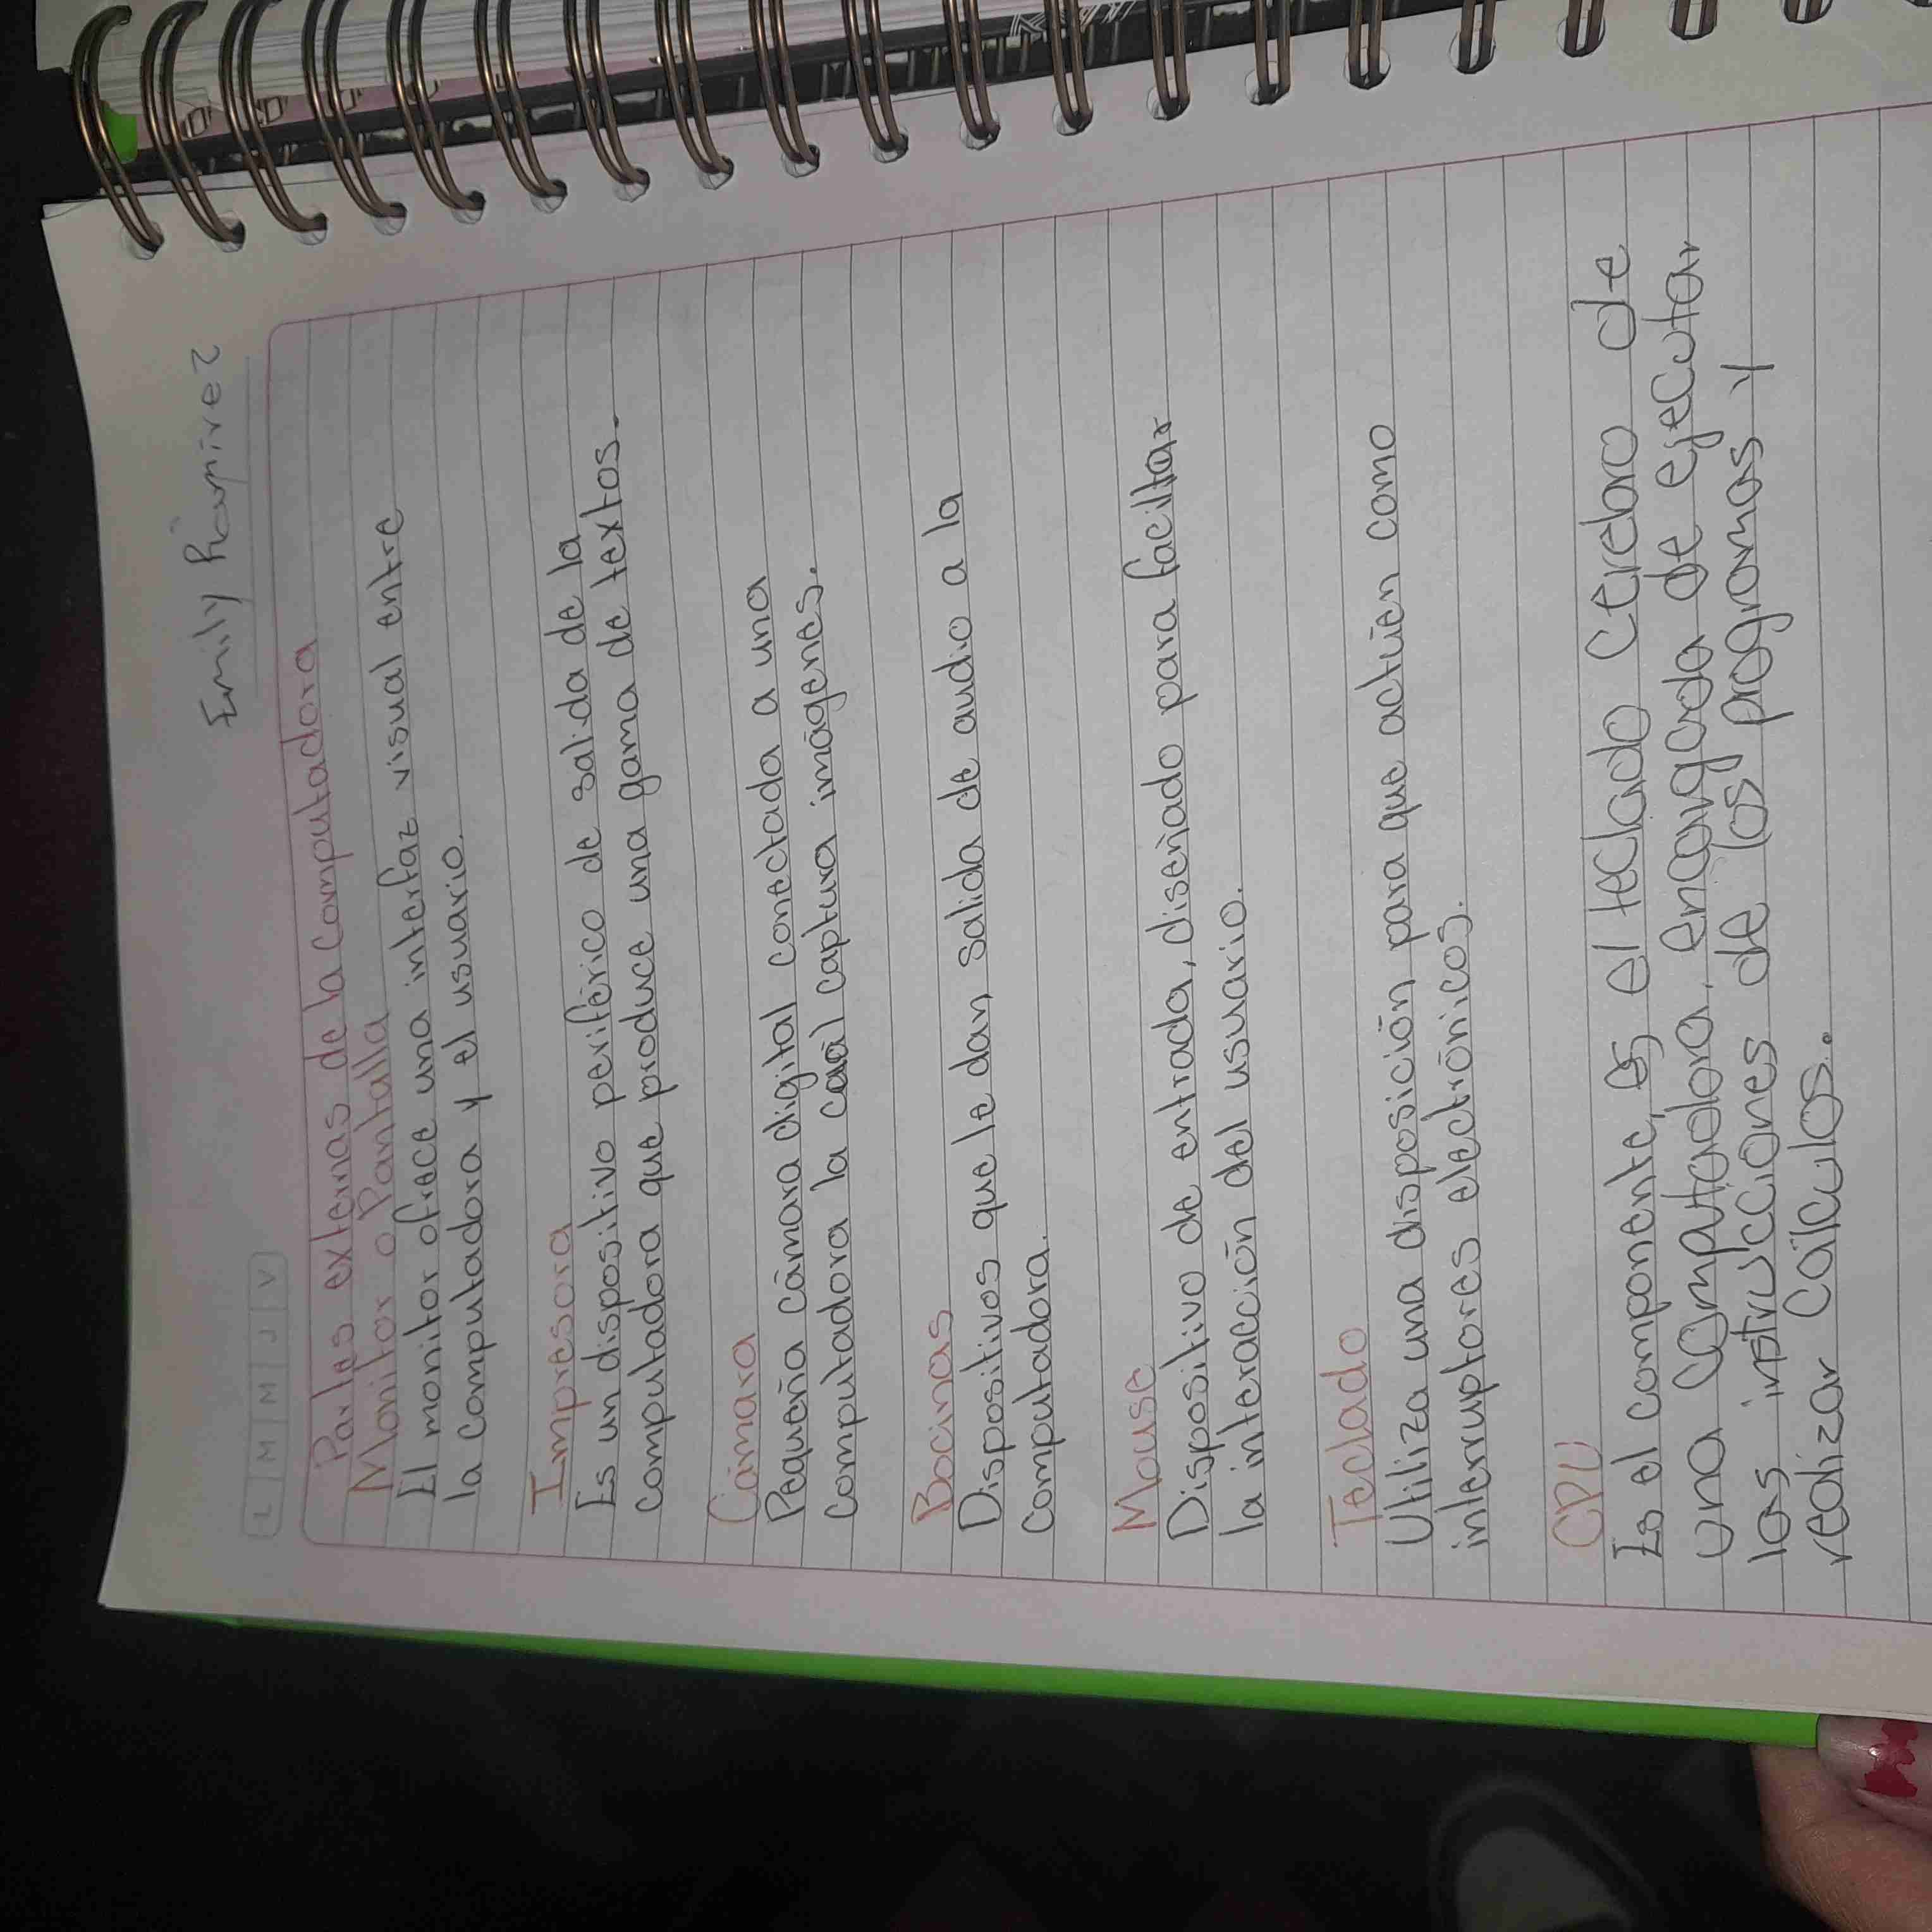 Emily Ramirez
L M M J V
Partes externas de la Computadora
Monitor o Pantalla
El monitor ofrece una interfaz visual entre
la computadora y el usuario.
Impresora
Es un dispositivo periférico de salida de la
computadora que produce una gama de textos.
Cámara
Pequeña cámara digital conectada a una
computadora la cual captura imágenes.
Bocinas
Dispositivos que le dan salida de audio a la
computadora.
Mouse
Dispositivo de entrada, diseñado para facilitar
la interacción del usuario.
Teclado
Utiliza una disposición para que actúen como
interruptores electrónicos.
CPU
Es el componente, es el teclado cerebro de
una computadora, encargada de ejecutar
las instrucciones de los programas y
realizar cálculos.